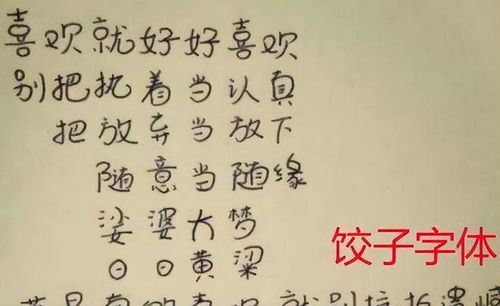 喜欢就好好喜欢
别把执着当认真
把放弃当放下
随意当随缘
娑婆大梦
日日黄粱
饺子字体
就别